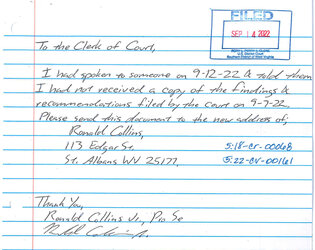 FILED
SEP 14 2022
RORY L. PERRY II, CLERK
U.S. District Court
Southern District of West Virginia
To the Clerk of Court,
I had spoken to someone on 9-12-22 & told them
I had not received a copy of the findings &
recommendations filed by the court on 9-7-22.
Please send this document to the new address of;
Ronald Collins,
113 Edgar St.
St. Albans WV 25177.
5:18-cr-00068
5:22-cv-00161
Thank You,
Ronald Collins Jr., Pro Se